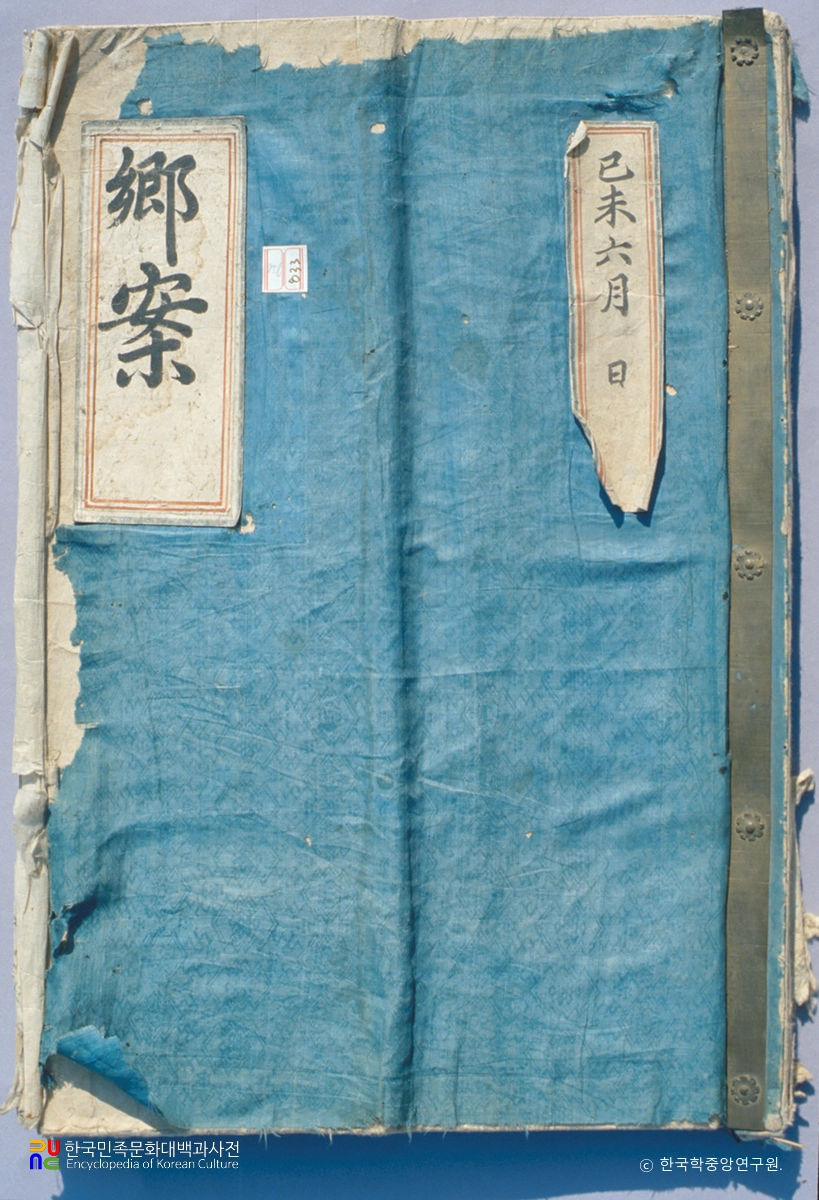 己未六月 日
鄕案
833
한국민족문화대백과사전
Encyclopedia of Korean Culture
© 한국학중앙연구원.